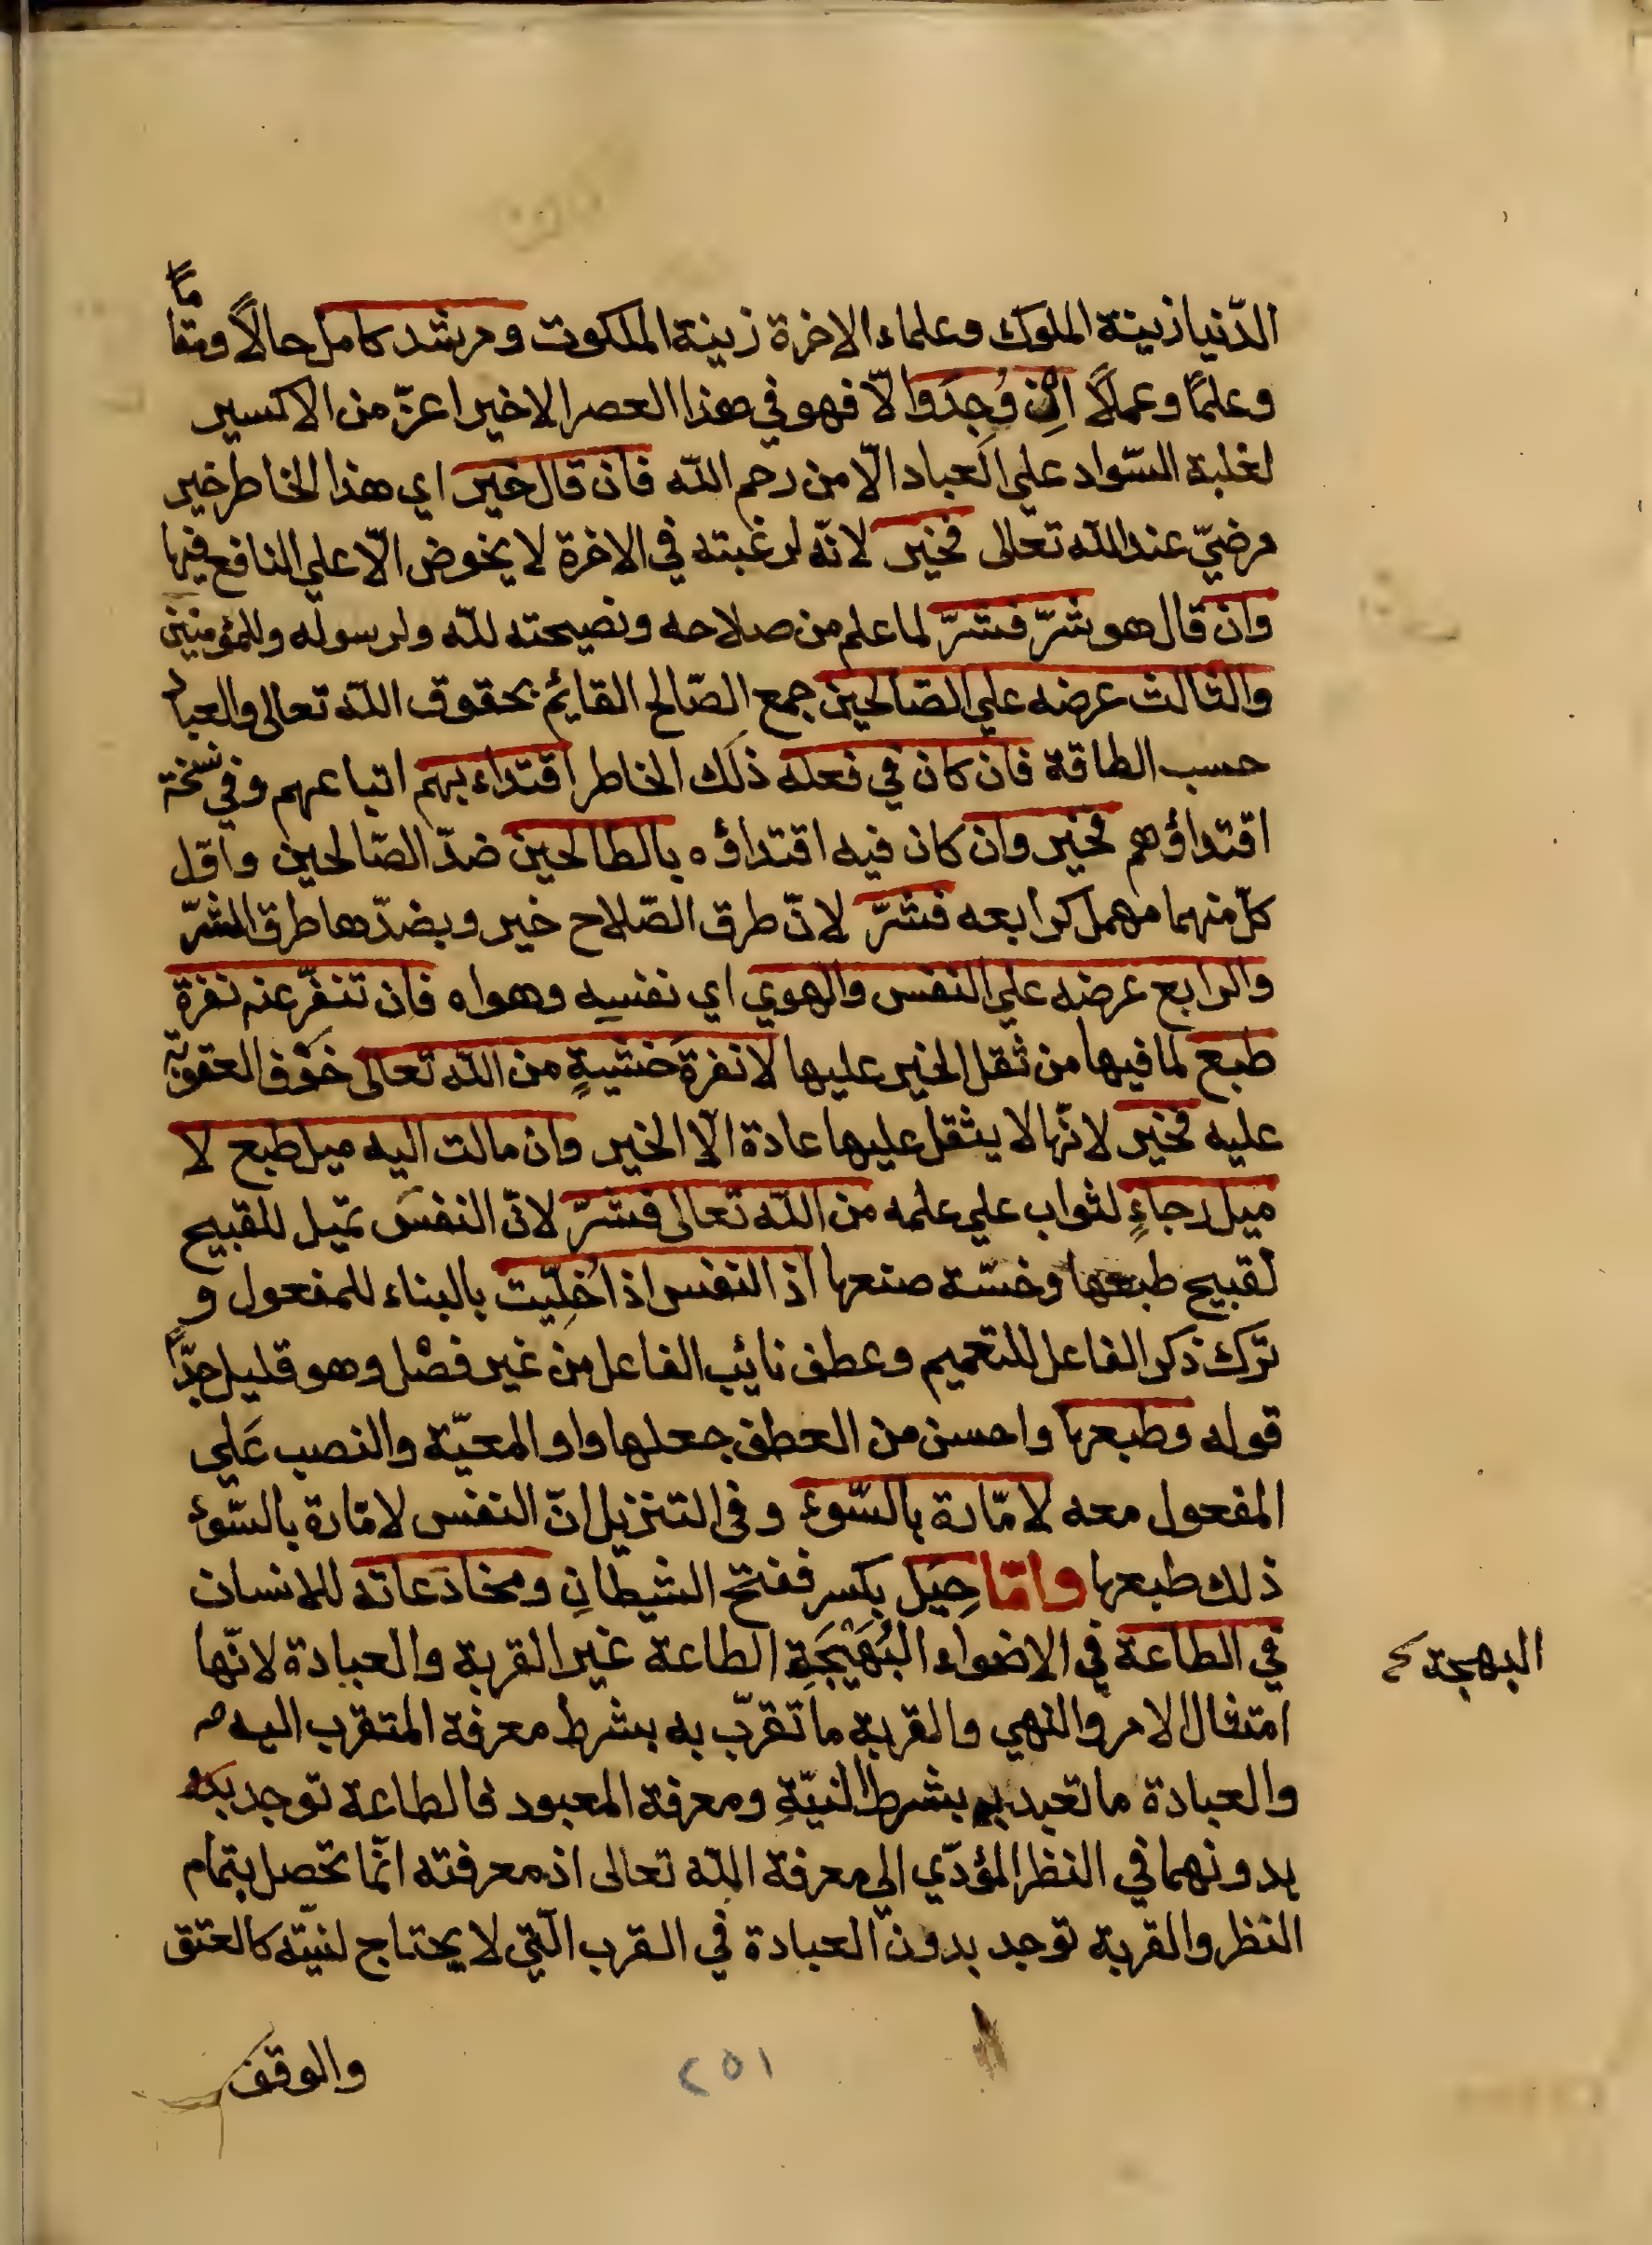 الدّنيا زينة الملوك وعلماء الاخرة زينة الملكوت ومرشد كامل حالاً ومقاماً
وعلمًا وعملًا ان وُجِدَ والّا فهو في هذا العصر الاخير اعزّ من الاكسير
لغلبة السّواد علي العباد الّا من رحم اللّه فان قال خير اي هذا الخاطر خير
مرضيّ عند اللّه تعالى فخير لانّه لرغبته في الاخرة لا يخوض الّا علي النافع فيها
وان قال هو شرّ فشرّ لما علم من صلاحه ونصيحته للّه ولرسوله وللمؤمنين
والثالث عرضه علي الصّالحين جمع الصّالح القائم بحقوق اللّه تعالى والعباد
حسب الطاقة فان كان في فعله ذلك الخاطر اقتداء بهم اتباعهم وفي نسخة
اقتداؤهم فخير وان كان فيه اقتداؤه بالطالحين ضدّ الصّالحين واوّل
كلّ منهما مهمل كرابعه فشرّ لانّ طرق الصّلاح خير وبضدّها طرق الشرّ
والرابع عرضه علي النفس والهوي اي نفسِه وهواه فان تنفّر عنه نفرة
طبع لما فيها من ثقل الخير عليها لا نفرةَ خشيةٍ من اللّه تعالى خوف العقوبة
عليه فخير لانّها لا يثقل عليها عادة الّا الخير وان مالت اليه ميل طبع لا
ميل رجاءٍ لثواب علي علمه من اللّه تعالى فشرّ لانّ النفسَ تميل للقبيح
لقبيح طبعها وخسّة صنعها اذ النفس اذا خُلِّيت بالبناء للمفعول و
ترك ذكر الفاعل للتعميم وعطف نائب الفاعل من غير فصْل وهو قليل جدًّا
قوله وطبعها واحسن من العطف جعلها واو المعيّة والنصب عَلي
المفعول معه لامّارة بالسّوء وفي التنزيل انّ النفس لامّارة بالسّوء
ذلك طبعها وامّا حِيَل بكسر ففتح الشيطانِ ومخادَعاته للانسان
في الطاعة في الاضواء البُهَيْجَةِ الطاعة غير القربة والعبادة لانّها
البهجة
امتثال الامر والنهي والقربة ما تقرّب به بشرط معرفة المتقرب اليه
والعبادة ما تعبد به بشرط النيّةِ ومعرفة المعبود فالطاعة توجد
بدونهما في النظر المؤدّي الي معرفة اللّه تعالى اذ معرفته انّما تحصل بتمام
النظر والقربة توجد بدون العبادة في القرب الّتي لا يحتاج لنيّته كالعتق
والوقف
٢٥١